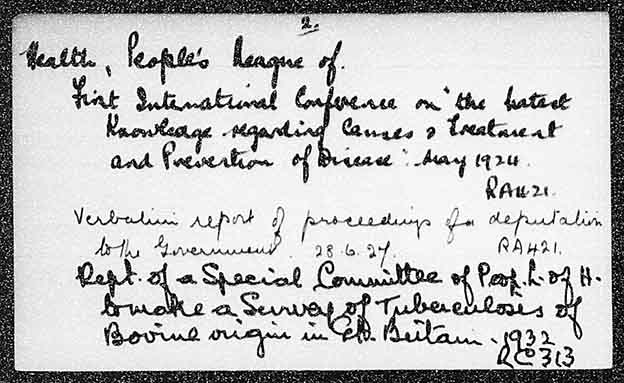 2.
Health, People's League of.
First International Conference on "the Latest
Knowledge regarding Causes & Treatment
and Prevention of Disease". May 1924.
RA421.
Verbatim report of proceedings of a deputation
to the Government. 28.6.27. RA421.
Rept. of a Special Committee of Peop. L. of H.
to make a Survey of Tuberculosis of
Bovine origin in Gt. Britain. 1932
RC313